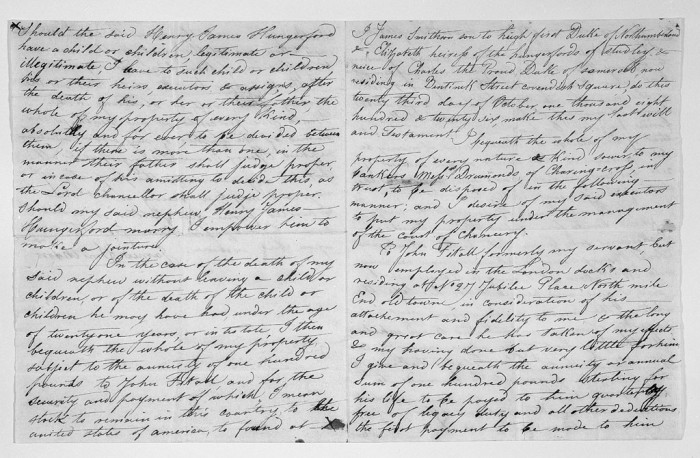 Should the said Henry James Hungerford
have a child or children, legitimate or
illegitimate, I leave to such child or children
his or their heirs, executors & assigns, after
the death of his, or her or their father the
whole of my property of every kind,
absolutely and for ever to be divided between
them, if there is more than one, in the
manner their father shall judge proper
or in case of his omitting to decide this, as
the Lord Chancellor shall judge proper.
Should my said nephew, Henry James
Hungerford marry, I empower him to
make a jointure.
In the case of the death of my
said nephew without leaving a child or
children, or of the death of the child or
children he may have had under the age
of twentyone years, or intestate, I then
bequeath the whole of my property
subject to the annuity of one hundred
pounds to John Fitall and for the
security and payment of which, I mean
stock to remain in this country, to the
united states of america, to found at
I James Smithson son to Hugh first Duke of Northumberland
& Elizabeth heiress of the Hungerfords of studley, &
niece of Charles the Proud Duke of somerset now
residing in Bentinck Street cavendish Square, do this
twenty third day of October, one thousand eight
hundred & twenty six make this my last will
and Testament.
I bequeath the whole of my
property of every nature & kind soever to my
bankers Messrs Drummonds of Charing-cross in
trust to be disposed of in the following
manner; and I desire of my said executors
to put my property under the management
of the court of chancery.
To John Fitall formerly my servant, but
now employed in the London docks and
residing at N 27 Jubilee Place North mile
End old town, in consideration of his
attachment and fidelity to me & the long
and great care he has taken of my effects
& my having done but very little for him
I give and bequeath the annuity or annual
sum of one hundred pounds sterling for
his life to be payed to him quarterly
free of legacy duty and all other deductions
the first payment to be made to him